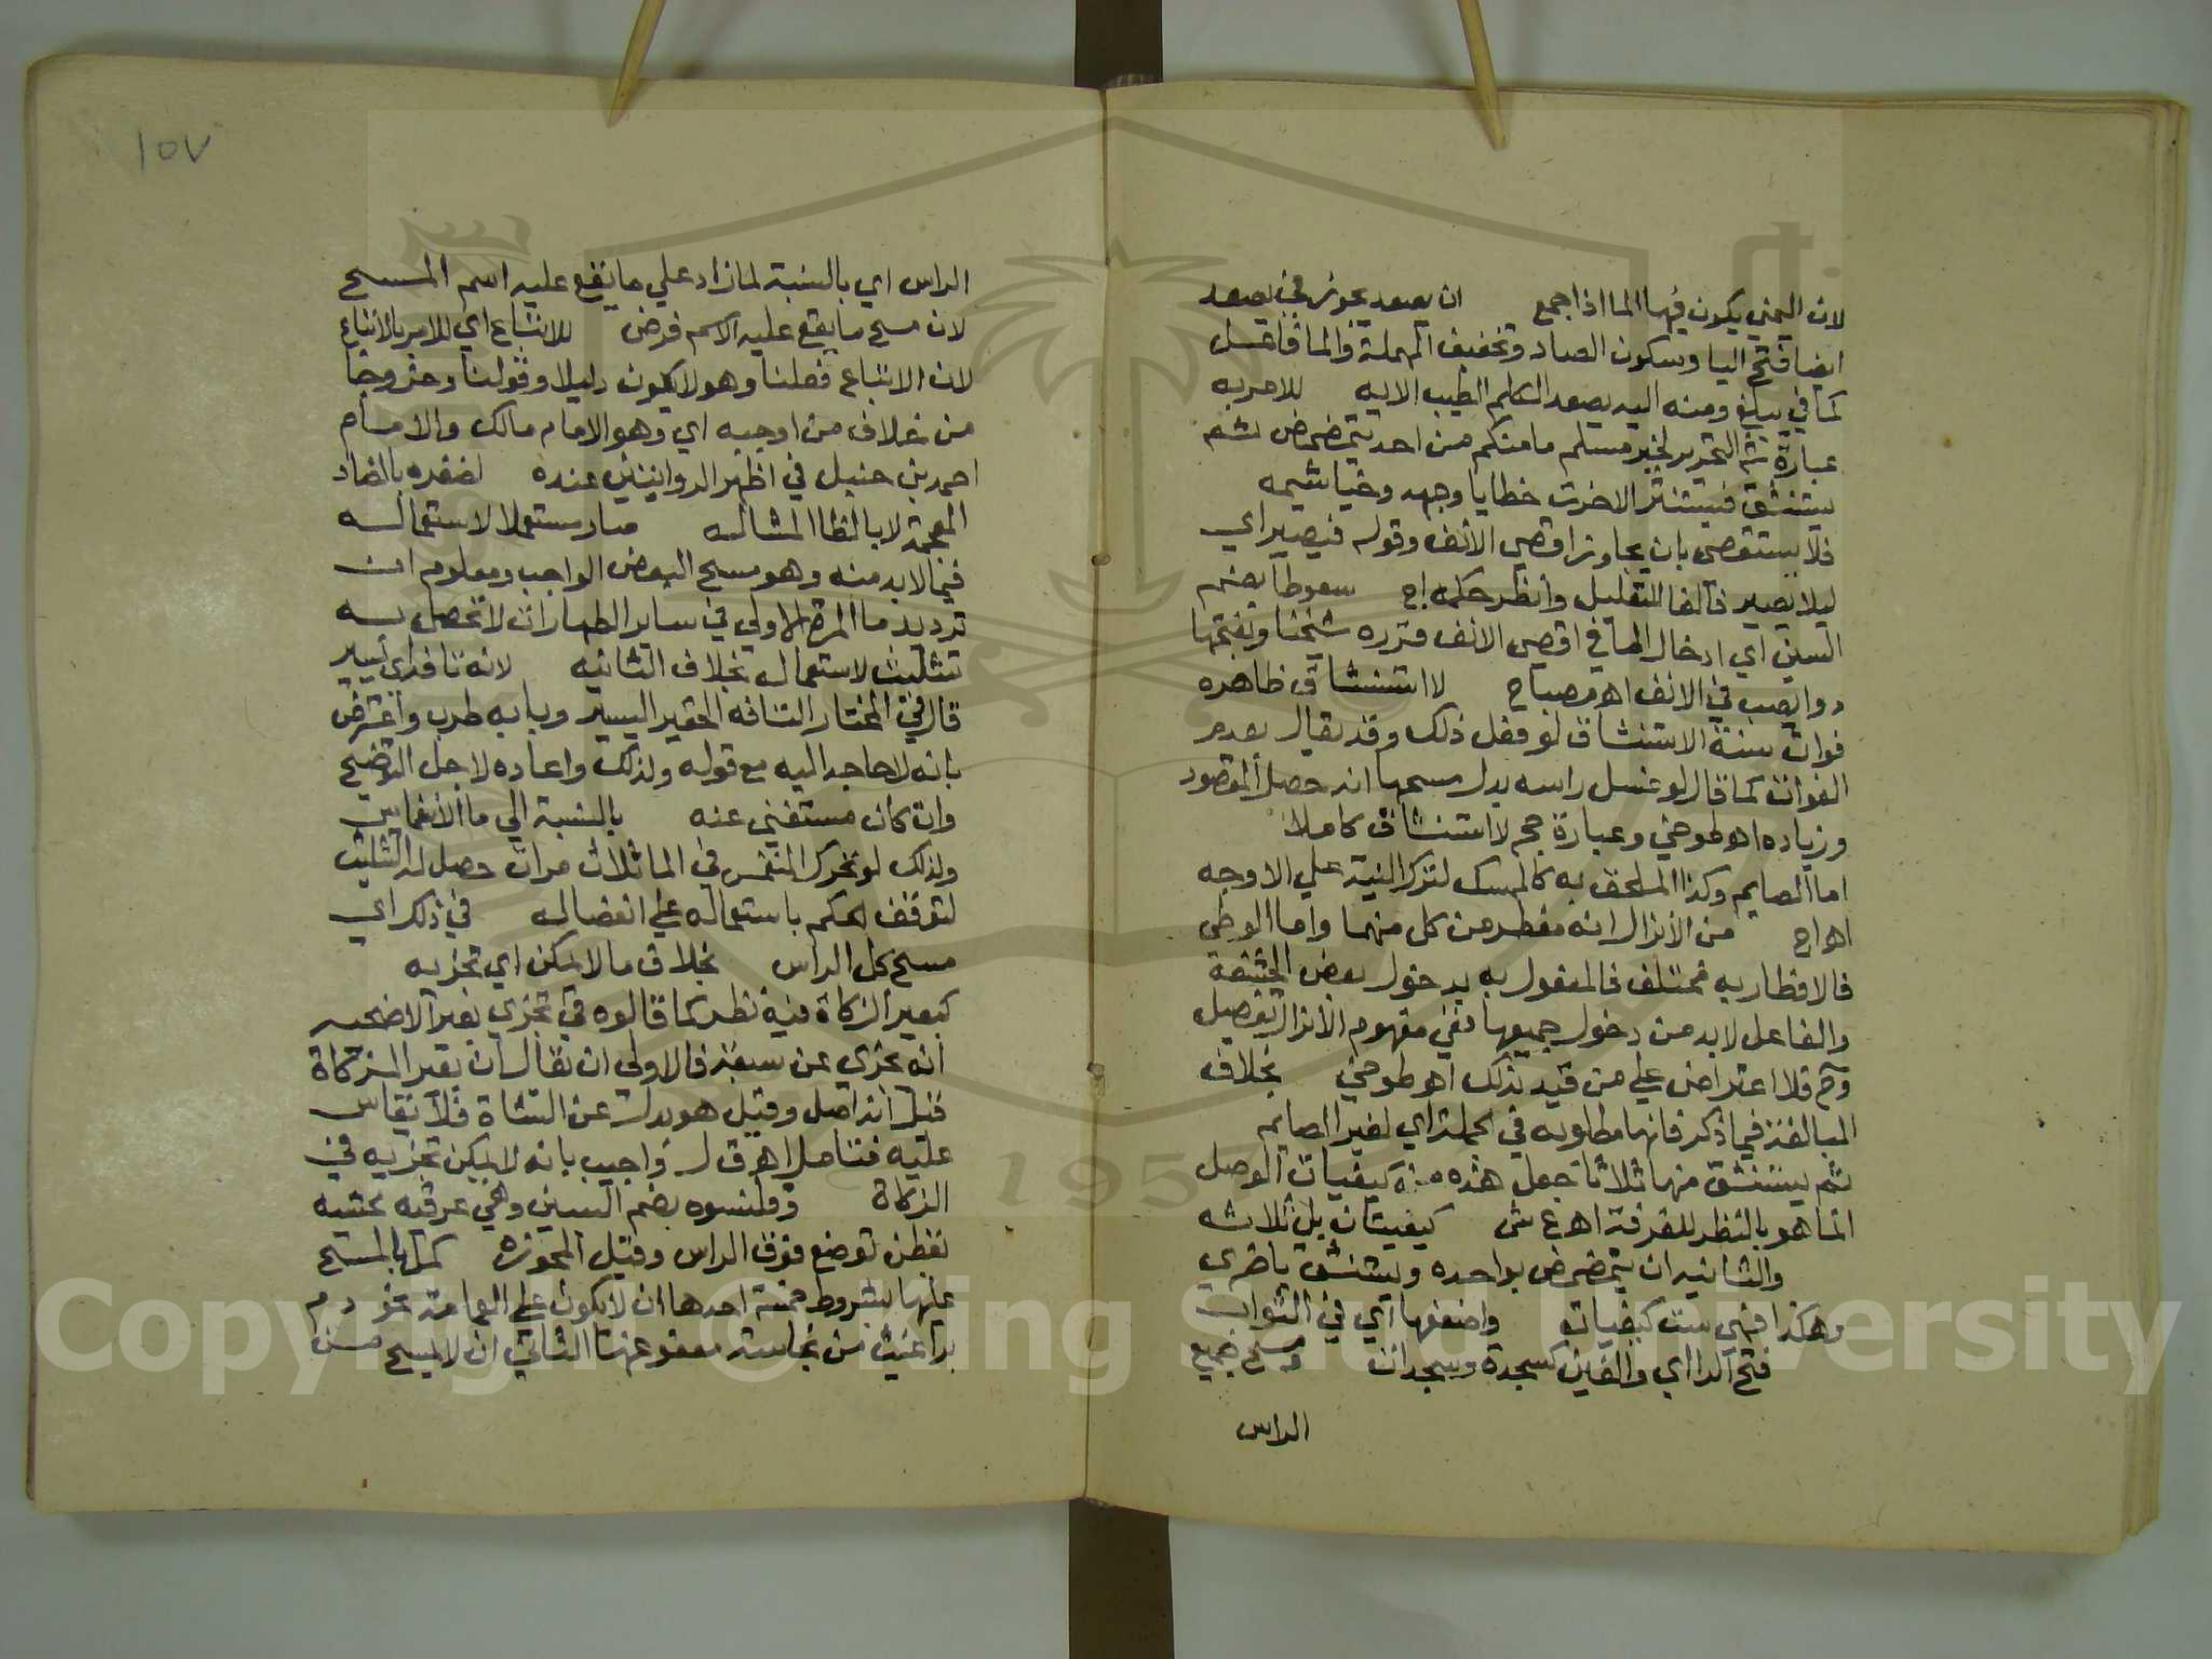 لان اليمني يكون فيها الما اذا جمع ان يصعد يجوز في يصعد
ايضا فتح اليا وسكون الصاد وتخفيف المهملة والما فاعل
كما في يبلغ ومنه اليه يصعد الكلم الطيب الايه للامر به
عبارة شم التحرير لخبر مسلم ما منكم من احد يتمضمض ثم
يستنشق فيستنثر الا خرت خطايا وجهه وخياشيمه
فلا يستقصي بان يجاوز اقصي الانف وقوله فيصير اي
ليلا يصير فالفا للتعليل وانظر حكمه اج سعوطا بضم
السين اي ادخال الما في اقصي الانف قرره شيخنا وبفتحها
دوا يصب في الانف اه مصباح لا استنشاق ظاهره
فوات سنة الاستنشاق لو فعل ذلك وقد يقال بعدم
الفوات كما قال لو غسل راسه بدل مسحها انه حصل المقصود
وزياده اه طوخي وعبارة حج لا استنشاق كاملا
اما الصايم وكذا الملحق به كالممسك لترك النية علي الاوجه
اه اج من الانزال انه مفطر من كل منهما واما الوطي
فالافطار به مختلف فالمفعول به بدخول بعض الحشفة
والفاعل لابد من دخول جميعها ففي مفهوم الانزال تفصيل
وح فلا اعتراض علي من قيد بذلك اه طوخي بخلاف
المبالغة فيما ذكر فانها مطلوبه في الجملة اي لغير الصايم
ثم يستنشق منها ثلاثا جعل هذه من كيفيات الوصل
انما هو بالنظر للغرفة اه ع ش كيفيتان بل ثلاثه
والثانيه ان يتمضمض بواحده ويستنشق باخري
وهكذا فهي ست كيفيات واضعفها اي في الثواب
فتح الرا اي والغين كسجدة وسجدات ومسح جميع
الراس
١٥٧
الراس اي بالنسبة لما زاد علي ما يقع عليه اسم المسح
لان مسح ما يقع عليه الاسم فرض للاتباع اي للامر بالاتباع
لان الاتباع فعلنا وهو لا يكون دليلا وقولنا وخروجا
من خلاف من اوجبه اي وهو الامام مالك والامام
احمد بن حنبل في اظهر الروايتين عنده لضفره بالضاد
المعجمة لا بالظا المشاله صار مستعملا لاستعماله
فيما لابد منه وهو مسح البعض الواجب ومعلوم ان
ترديد ما المرة الاولي في ساير الطهارات لا تحصل به
تثليث لاستعماله بخلاف الثانيه لانه تافه اي يسير
قال في المختار التافه الحقير اليسير وبابه طرب واعترض
بانه لا حاجه اليه مع قوله ولذلك واعاده لاجل التوضيح
وان كان مستغني عنه بالنسبة الي ما الانغماس
ولذلك لو تحرك المنغمس في الما ثلاث مرات حصل له التثليث
لتوقف الحكم باستعماله علي انفصاله في ذلك اي
مسح كل الراس بخلاف ما لا يمكن اي تجزيه
كبعير الزكاة فيه نظر كما قالوه في تجزي بعير الاضحيه
انه يجزي عن سبعة فالاولي ان يقال ان بعير الزكاة
قيل انه اصل وقيل هو بدل عن الشاة فلا يقاس
عليه فتامل اه ق ل واجيب بانه لا يمكن تجزيه في
الزكاة وقلنسوه بضم السين وهي عرقيه محشيه
بقطن توضع فوق الراس وقيل المحوزه كمل بالمسح
عليها بشروط خمسة احدها ان لا يكون علي العمامة نحو دم
براغيث من نجاسة معفو عنها الثاني ان لا يمسح من